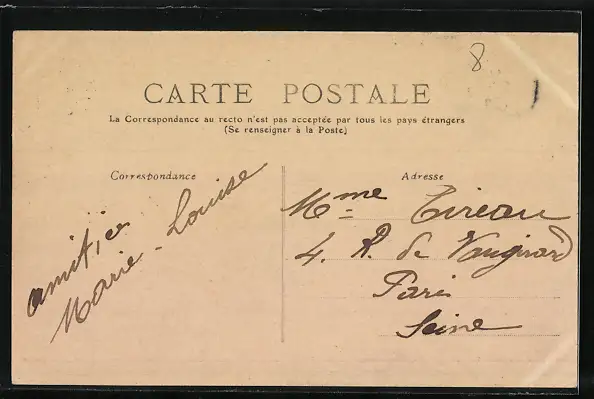 8
CARTE POSTALE
La Correspondance au recto n'est pas acceptée par tous les pays étrangers
(Se renseigner à la Poste)
Correspondance
Adresse
amitié
Marie-Louise
Mme Tireau
4. R. de Vaugirard
Paris
Seine